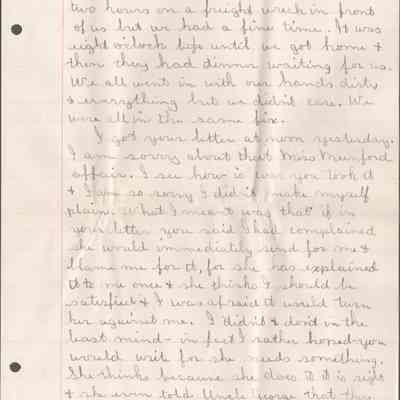 two hours on a freight wreck in front
of us but we had a fine time. It was
eight o'clock before until we got home &
then they had dinner waiting for us.
We all went in with our hands dirty
& everything but we didn't care. We
were all in the same fix.
I got your letter at noon yesterday.
I am sorry about that Miss Munford
affair. I see how it was you took it
& I am so sorry I didn't make myself
plain. What I meant was that if in
your letter you said I had complained
she would immediately send for me &
blame me for it, for she has explained
it to me once & she thinks I should be
satisfied & I was afraid it would turn
her against me. I didn't & don't in the
least mind - in fact I rather hoped you
would write for she needs something.
She thinks because she does it it is right
& she even told Uncle George that they